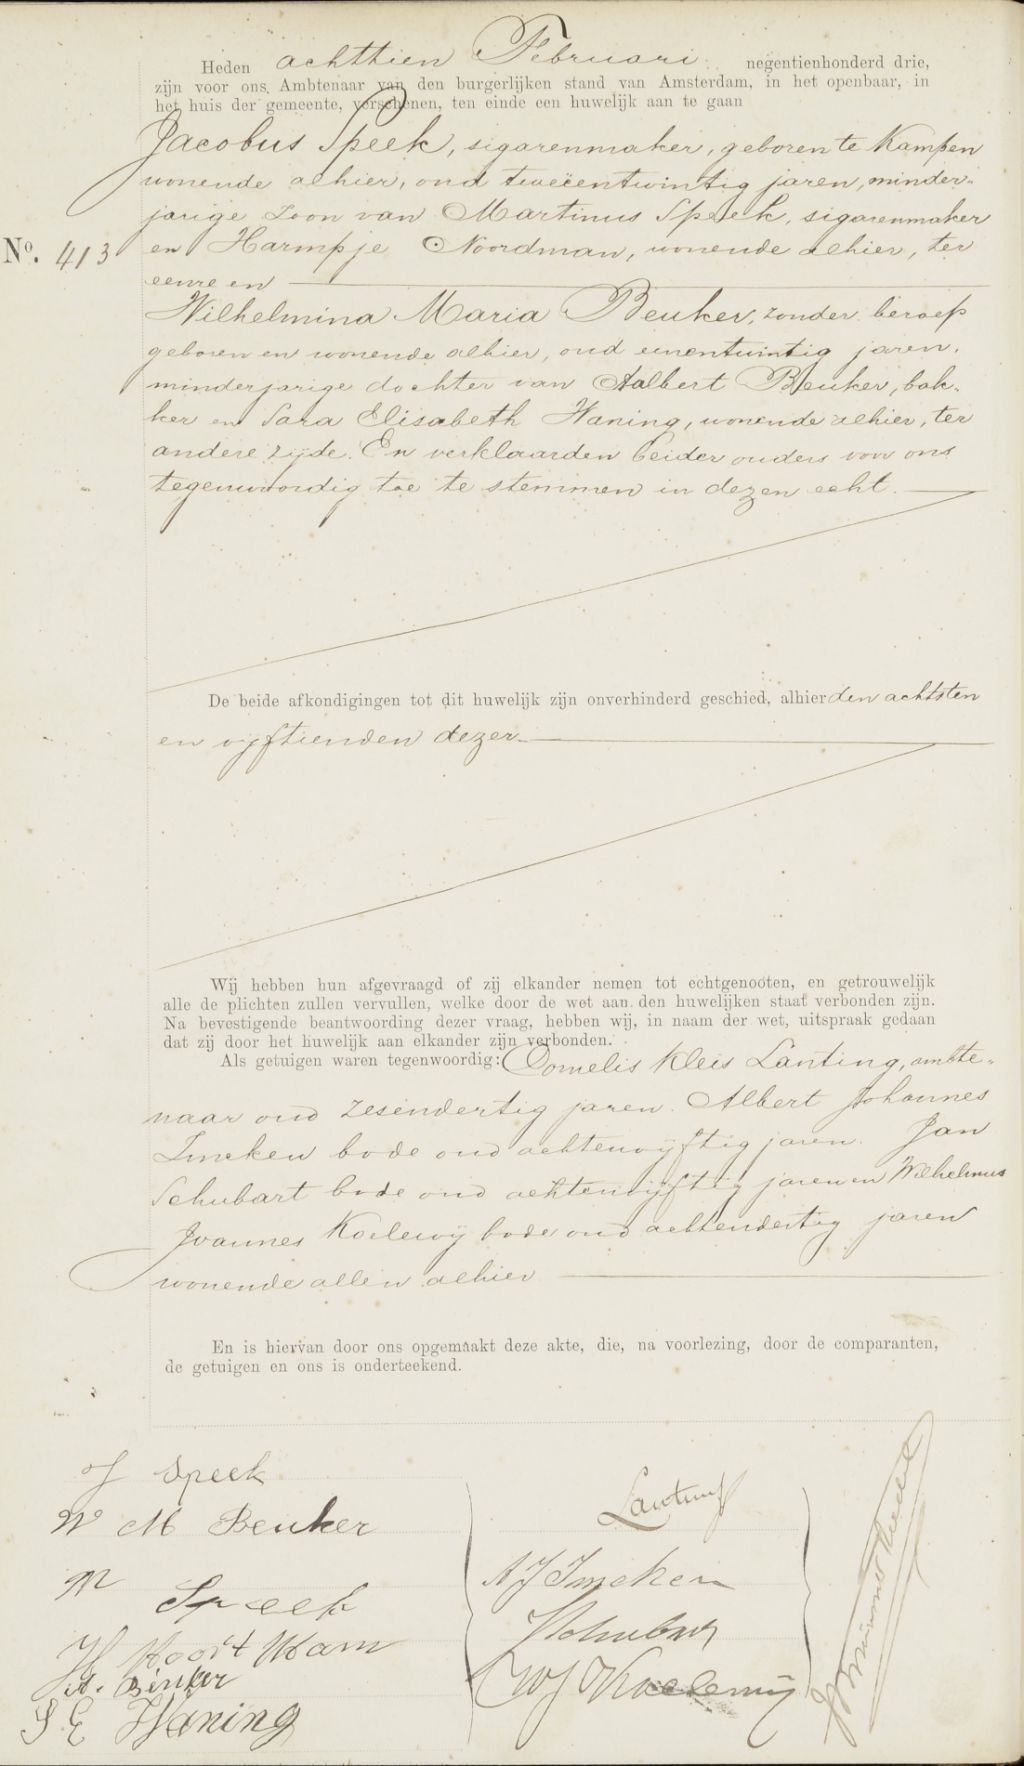 Heden achttien Februari negentienhonderd drie,
zijn voor ons, Ambtenaar van den burgerlijken stand van Amsterdam, in het openbaar, in
het huis der gemeente, verschenen, ten einde een huwelijk aan te gaan
Jacobus Speek, sigarenmaker, geboren te Kampen
wonende alhier, oud tweeëentwintig jaren, minder-
jarige zoon van Martinus Speek, sigarenmaker
No. 413 en Harmpje Noordman, wonende alhier, ter
eenre en
Wilhelmina Maria Beuker, zonder beroep
geboren en wonende alhier, oud eenentwintig jaren,
minderjarige dochter van Aalbert Beuker, bak-
ker en Sara Elisabeth Haning, wonende alhier, ter
andere zijde. En verklaarden beider ouders voor ons
tegenwoordig toe te stemmen in dezen echt.
De beide afkondigingen tot dit huwelijk zijn onverhinderd geschied, alhier den achtsten
en vijftienden dezer
Wij hebben hun afgevraagd of zij elkander nemen tot echtgenooten, en getrouwelijk
alle de plichten zullen vervullen, welke door de wet aan den huwelijken staat verbonden zijn.
Na bevestigende beantwoording dezer vraag, hebben wij, in naam der wet, uitspraak gedaan
dat zij door het huwelijk aan elkander zijn verbonden.
Als getuigen waren tegenwoordig: Cornelis Kleis Lanting, ambte-
naar oud zesendertig jaren. Albert Johannes
Imeken bode oud achtenvijftig jaren. Jan
Schubart bode oud achtenvijftig jaren en Wilhelmus
Joannes Koelewij bode oud achtendertig jaren
wonende allen alhier
En is hiervan door ons opgemaakt deze akte, die, na voorlezing, door de comparanten,
de getuigen en ons is onderteekend.
J Speek
W M Beuker
M Speek
H Noort Mam
A. Beuker
S E Haning
Lanting
A J Imeken
JSchubart
W J Koelewij